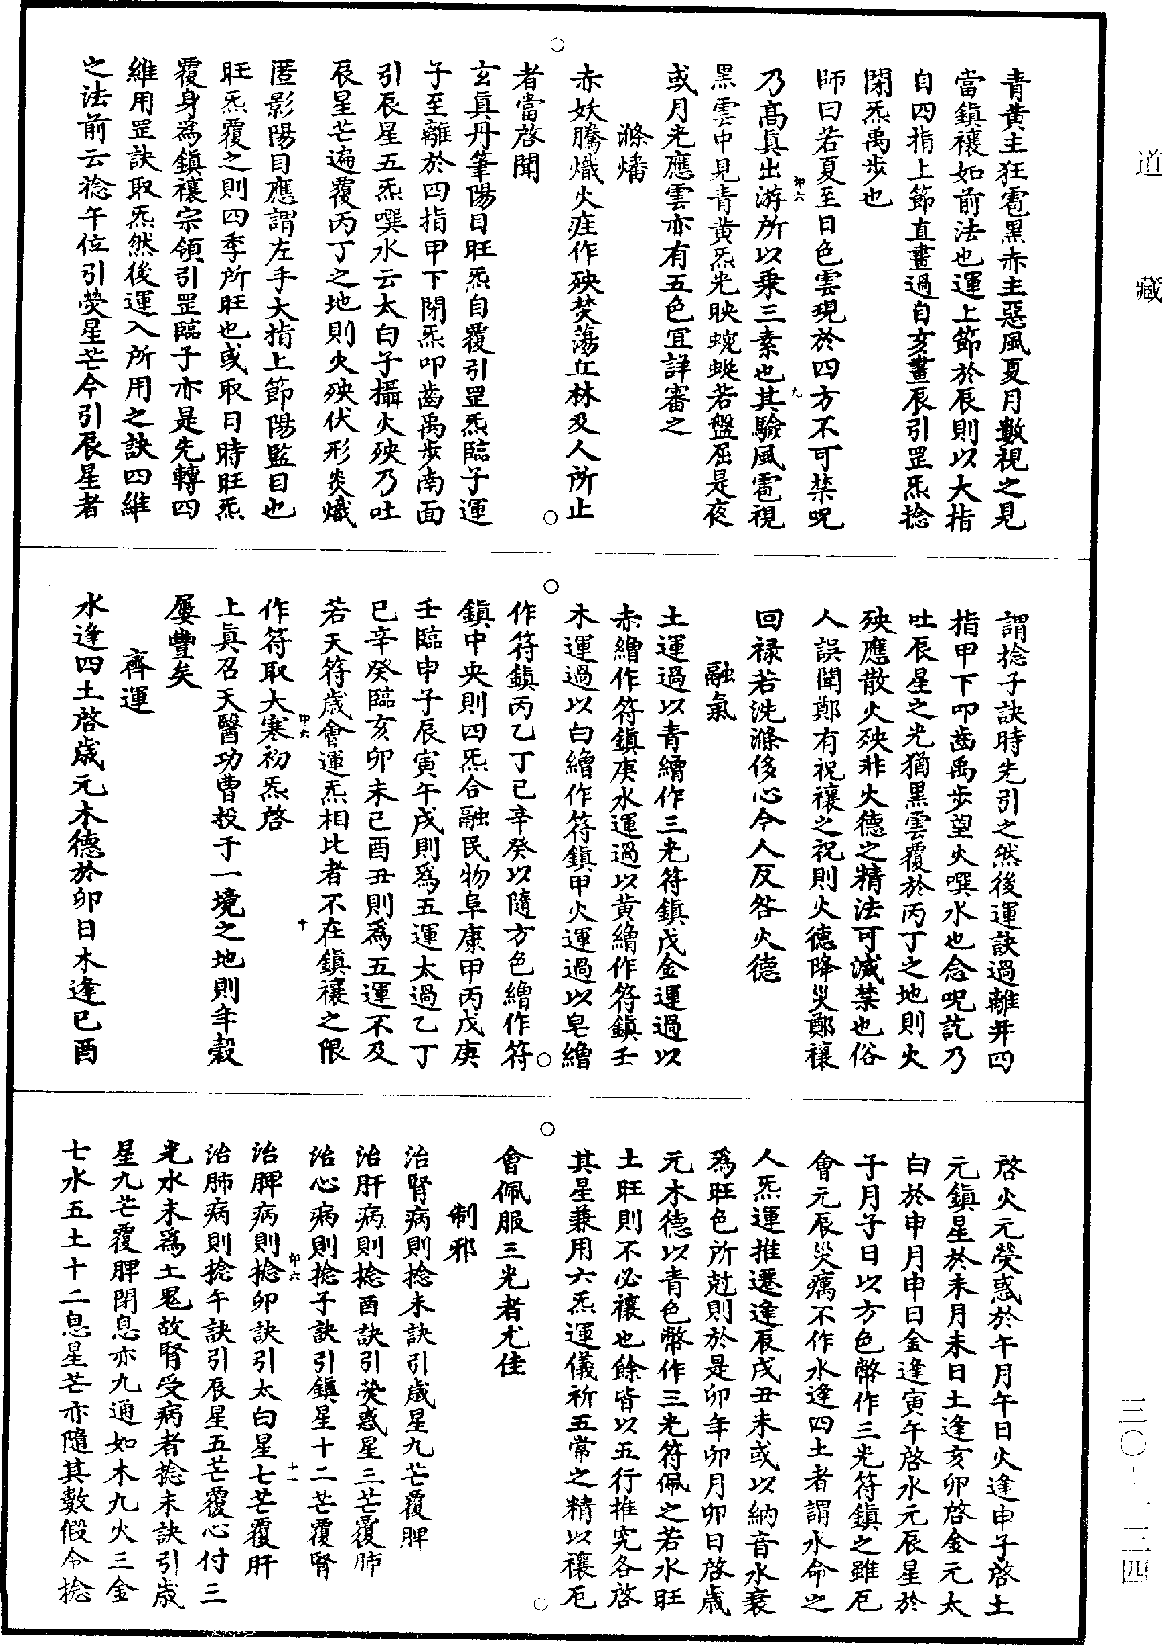 道藏
青黃主狂雹黑赤主惡風夏月數視之見
當鎮禳如前法也運上節於辰則以大指
自四指上節直畫過自亥畫辰引罡炁捻
閉炁禹步也
師曰若夏至日色雲現於四方不可禁呪
乃高眞出游所以乗三素也其驗風雹視
黑雲中見青黃炁光映蜿蜒若盤屈是夜
或月光應雲亦有五色宜詳審之
滌燔
赤妖騰熾火疰作殃焚蕩丘林及人所止
者當啓聞
玄眞丹筆陽目旺炁自覆引罡炁臨子運
子至離於四指甲下閉炁叩齒禹步南面
引辰星五炁噀水云太白子攝火殃乃吐
辰星芒遍覆丙丁之地則火殃伏形炎熾
匿影陽目應謂左手大指上節陽監目也
旺炁覆之則四季所旺也或取日時旺炁
覆身爲鎮禳宗領引罡臨子亦是先轉四
維用罡訣取炁然後運入所用之訣四維
之法前云捻午位引熒星芒今引辰星者
謂捻子訣時先引之然後運訣過離并四
指甲下叩齒禹步望火噀水也念呪訖乃
吐辰星之光猶黑雲覆於丙丁之地則火
殃應散火殃非火德之精法可滅禁也俗
人誤聞鄭有祝禳之祝則火德降災鄭禳
回禄若洗滌侈心令人反咎火德
融氣
土運過以青繒作三光符鎮戊金運過以
赤繒作符鎮庚水運過以黃繒作符鎮壬
木運過以白繒作符鎮甲火運過以皂繒
作符鎮丙乙丁己辛癸以隨方色繒作符
鎮中央則四炁合融民物阜康甲丙戊庚
壬臨申子辰寅午戌則爲五運太過乙丁
己辛癸臨亥卯未巳酉丑則爲五運不及
若天符歲會運炁相比者不在鎮禳之限
作符取大寒初炁啓
上眞召天醫功曹投于一境之地則年穀
屢豐矣
齊運
水逢四土啓歲元木德於卯日木逢巳酉
啓火元熒惑於午月午日火逢申子啓土
元鎮星於未月未日土逢亥卯啓金元太
白於申月申日金逢寅午啓水元辰星於
子月子日以方色幣作三光符鎮之雖厄
會元辰災癘不作水逢四土者謂水命之
人炁運推遷逢辰戌丑未或以納音水衰
爲旺色所尅則於是卯年卯月卯日啓歲
元木德以青色幣作三光符佩之若水旺
土旺則不必禳也餘皆以五行推究各啓
其星兼用六炁運儀祈五常之精以禳厄
會佩服三光者尤佳
制邪
治腎病則捻未訣引歲星九芒覆脾
治肝病則捻酉訣引熒惑星三芒覆肺
治心病則捻子訣引鎮星十二芒覆腎
治脾病則捻卯訣引太白星七芒覆肝
治肺病則捻午訣引辰星五芒覆心付三
光水未爲土鬼故腎受病者捻未訣引歲
星九芒覆脾閉息亦九通如木九火三金
七水五土十二息星芒亦隨其數假令捻
三〇-一二四